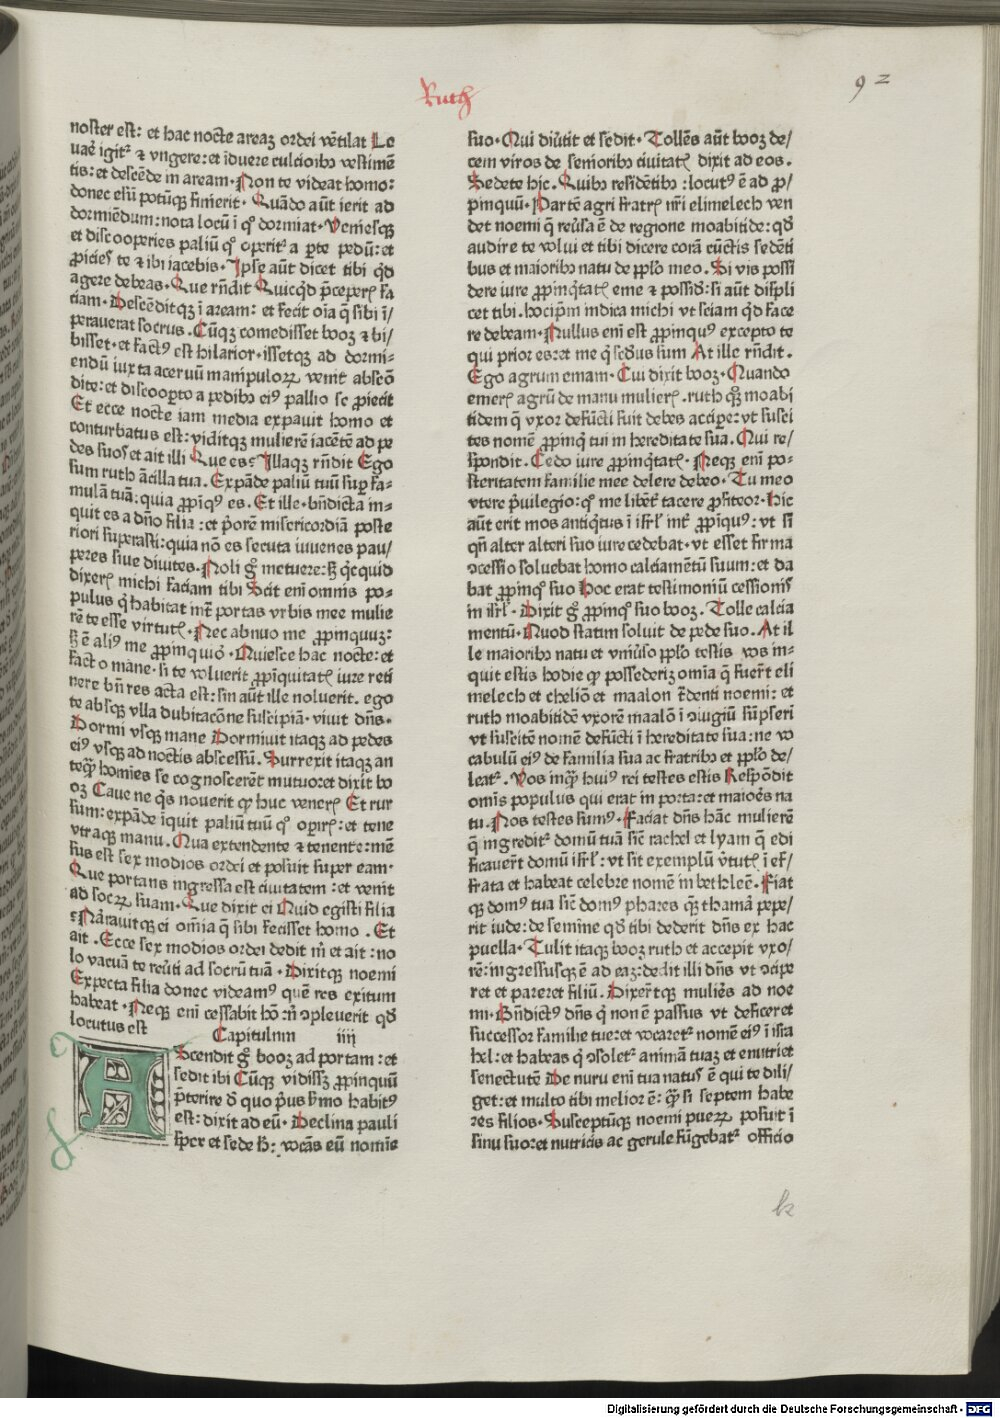 Ruth
92
noster est: et hac nocte areaȝ ordei vētilat La
uaẻ igitᷣ ⁊ vngere: et īduere cultiorib vestimē
tis: et descēde in aream. Non te videat homo:
donec esū potūqȝ finierit. Quādo aūt ierit ad
dormiēdum: nota locū ī qͦ dormiat. Veniesqȝ
et discooperies paliū qͦ operitᷣ a ꝑte pedū: et
ꝓicies te ⁊ ibi iacebis. Ipse aūt dicet tibi qd
agere debeas. Que rñdit Quicqd p̄ceperꝭ fa
ciam. Descēditqȝ ī aream: et fecit oīa q̄ sibi ī/
perauerat socrus. Cūqȝ comedisset booz ⁊ bi/
bisset. et factꝰ est hilarior. issetqȝ ad dormi-
endū iuxta aceruū manipuloꝝ venit abscō
dite: et discoopto a pedib eiꝰ pallio se ꝓiecit
Et ecce nocte iam media expauit homo et
conturbatus est: viditqȝ mulierē iacētē ad pe
des suos et ait illi Que es Illaqȝ rñdit Ego
sum ruth ācilla tua. Expāde paliū tuū sup fa-
mulā tuā: quia ꝓpīqꝰ es. Et ille. bñdicta in-
quit es a dño filia: et p̓orē misericordiā poste
riori superasti: quia nō es secuta iuuenes pau/
peres siue diuites. Noli gͦ metuere: sȝ qͥcquid
dixerꝭ michi faciam tibi Scit eni omnis po-
pulus qͥ habitat int̓ portas vrbis mee mulie
rē te esse virtutꝭ. Nec abnuo me ꝓpinquuȝ:
sȝ ē aliꝰ me ꝓpinquioꝛ. Quiesce hac nocte: et
facto mane. si te voluerit ꝓpīquitatꝭ iure reti
nere bñ res acta est: sin aūt ille noluerit. ego
te absqȝ vlla dubitacōne suscipiā. viuit dñs.
Dormi vsqȝ mane Dormiuit itaqȝ ad pedes
eiꝰ vsqȝ ad noctis abscessū. Surrexit itaqȝ an
teqȝ̄ homīes se cognoscerēt mutuo: et dixit bo
oz Caue ne qͥs nouerit qͥ huc venerꝭ Et rur
sum: expāde īquit paliū tuū qͦ opirꝭ: et tene
vtraqȝ manu. Qua extendente ⁊ tenente: mē
sus est sex modios ordei et posuit super eam.
Que portans ingressa est ciuitatem: et venit
ad socꝝ suam. Que dixit ei Quid egisti filia
Narauitqȝ ei omīa q̄ sibi fecisset homo. Et
ait. Ecce sex modios ordei dedit m̄ et ait: no
lo vacuā te reūti ad socrū tuā. Dixitqȝ noemi
Expecta filia donec videamꝰ quē res exitum
habeat. Neqȝ eni cessabit hō: nͣ ↄpleuerit qd
locutus est
Capitulum iiij
AScendit gͦ booz ad portam: et
sedit ibi Cūqȝ vidissȝ ꝓpinquū
p̄terire d̓ quo p̓us sͬmo habitꝰ
est: dixit ad eū. Declina pauli
sper et sede h̓: vocās eū nomīe
suo. Qui diūtit et sedit. Tollēs aūt booz de/
cem viros de senioribꝰ ciuitatꝭ dixit ad eos.
Sedete hic. Quib residētib: locutꝰ ē ad ꝓ/
pinquū. Partē agri fratrꝭ nr̄i elimelech ven
det noemi q̄ reūsa ē de regione moabitide: qd
audire te volui et tibi dicere corā cūctis sedēti
bus et maiorib natu de pplo meo. Si vis possi
dere iure ꝓpinqͥtatꝭ eme ⁊ possid̓: si aūt displi
cet tibi. hocipm indica michi vt sciam qd face
re debeam. Nullus eni est ꝓpinqꝰ excepto te
qui prior es: et me qͥ secūs sum At ille rñdit.
Ego agrum emam. Cui dixit booz. Quando
emerꝭ agrū de manu mulierꝭ. ruth qȝ moabi
tidem q̄ vxor defūcti fuit debes accipe: vt susci
tes nomē ꝓpinqͥ tui in hereditate sua. Qui re/
spondit. Cedo iure ꝓpinqͥtatꝭ. Neqȝ eni po-
steritatem familie mee delere debeo. Tu meo
vtere p̓uilegio: qͦ me libēt tacere ꝓfiteor. Hic
aūt erit mos antiqͥtus ī isrl̓ int̓ ꝓpīqꝰ: vt si
qñ alter alteri suo iure cedebat. vt esset firma
ↄcessio soluebat homo calciamētū suum: et da
bat ꝓpinqͦ suo Hoc erat testimoniū cessionis
in isrl̓. Dixit gͦ ꝓpinqͦ suo booz. Tolle calcia
mentū. Quod statim soluit de pede suo. At il
le maiorib natu et vniūso pplo testis vos in-
quit estis hodie qͥ possederiȝ omīa q̄ fuerūt eli
melech et cheliō et maalon t̄denti noemi: et
ruth moabitidē vxorē maalō ī ↄiugiū sūpseri
vt suscitē nomē defūcti ī hereditate sua: ne vo
cabulū eiꝰ de familia sua ac fratrib et pplo de/
leatᷣ. Vos inqȝ̄ huiꝰ rei testes estis Respōdit
omīs populus qui erat in porta: et maioēs na
tu. Nos testes sumꝰ. Faciat dñs hāc mulierē
q̄ ingreditᷣ domū tuā sic̄ rachel et lyam q̄ edi
ficauer̄t domū isrl̓: vt sit exemplū v̓tutꝭ ī ef/
frata et habeat celebre nomē in bethleē. Fiat
qȝ domꝰ tua sic̄ domꝰ phares qȝ̄ thamar̄ pepe/
rit iude: de semīne qd̓ tibi dederit dñs ex hac
puella. Tulit itaqȝ booz ruth et accepit vxo/
rē: ingressusqȝ ē ad eaȝ: dedit illi dñs vt ↄcipe
ret et pareret filiū. Dixer̄tqȝ muliēs ad noe
mi. Bñdictꝰ dñs qͥ non ē passus vt deficeret
successor familie tue: et vocaretᷣ nomē eiꝰ ī isra
hel: et habeas qͥ ↄsoletᷣ animā tuaȝ et enutriet
senectutē De nuru eni tua natus ē qui te dili/
get: et multo tibi melior ē: qȝ̄ si septem habe
res filios. Susceptūqȝ noemi pueꝝ posuit ī
sinu suo: et nutricis ac gerule fūgebatᷣ officio
k
Digitalisierung gefördert durch die Deutsche Forschungsgemeinschaft - DFG